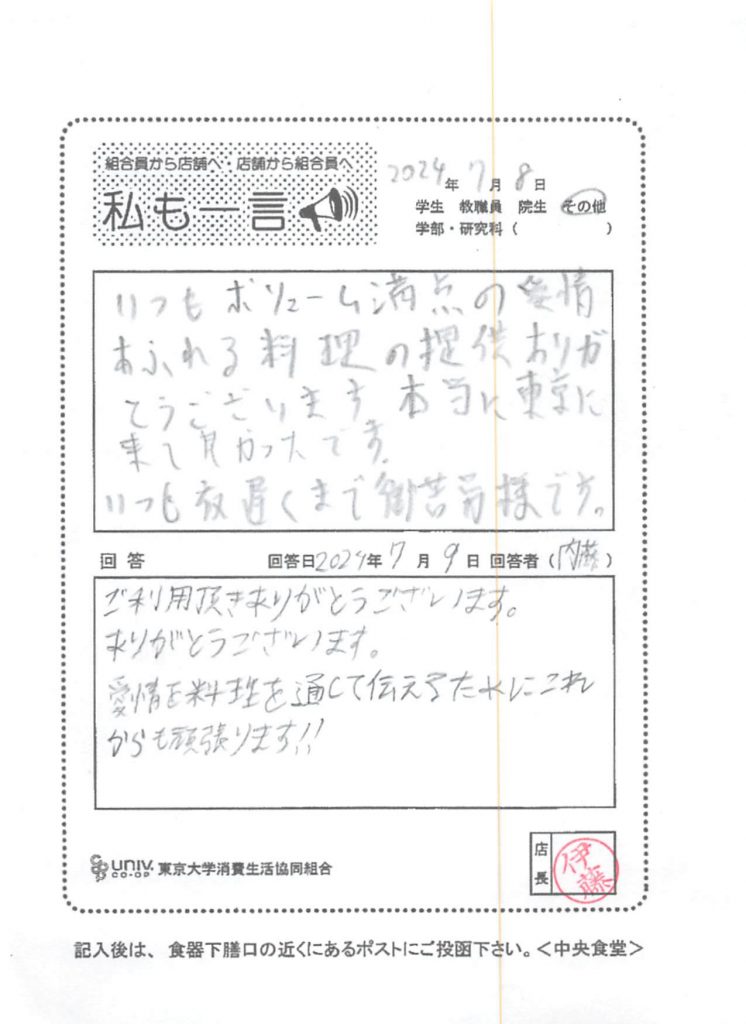 組合員から店舗へ・店舗から組合員へ
私も一言
2024年7月8日
学生 教職員 院生 その他
学部・研究科( )
いつもボリューム満点の愛情
あふれる料理の提供ありが
とうございます 本当に東京に
来て良かったです。
いつも夜遅くまで御苦労様です。
回答 回答日2024年7月9日 回答者(内藤)
ご利用頂きありがとうございます。
ありがとうございます。
愛情を料理を通して伝えるためにこれ
からも頑張ります!!
univ. CO-OP 東京大学消費生活協同組合
店長 伊藤
記入後は、食器下膳口の近くにあるポストにご投函下さい。<中央食堂>